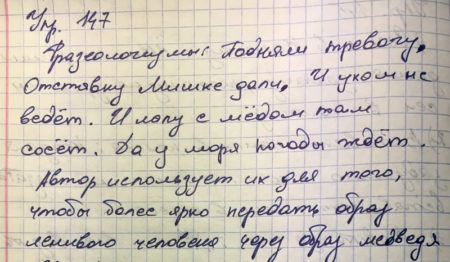 Упр. 147
Фразеологизмы: Подняли тревогу,
Отставку Мишке дали, И ухом не
ведёт. И лапу с мёдом там
сосёт. Да у моря погоды ждёт.
Автор использует их для того,
чтобы более ярко передать образ
ленивого человека через образ медведя